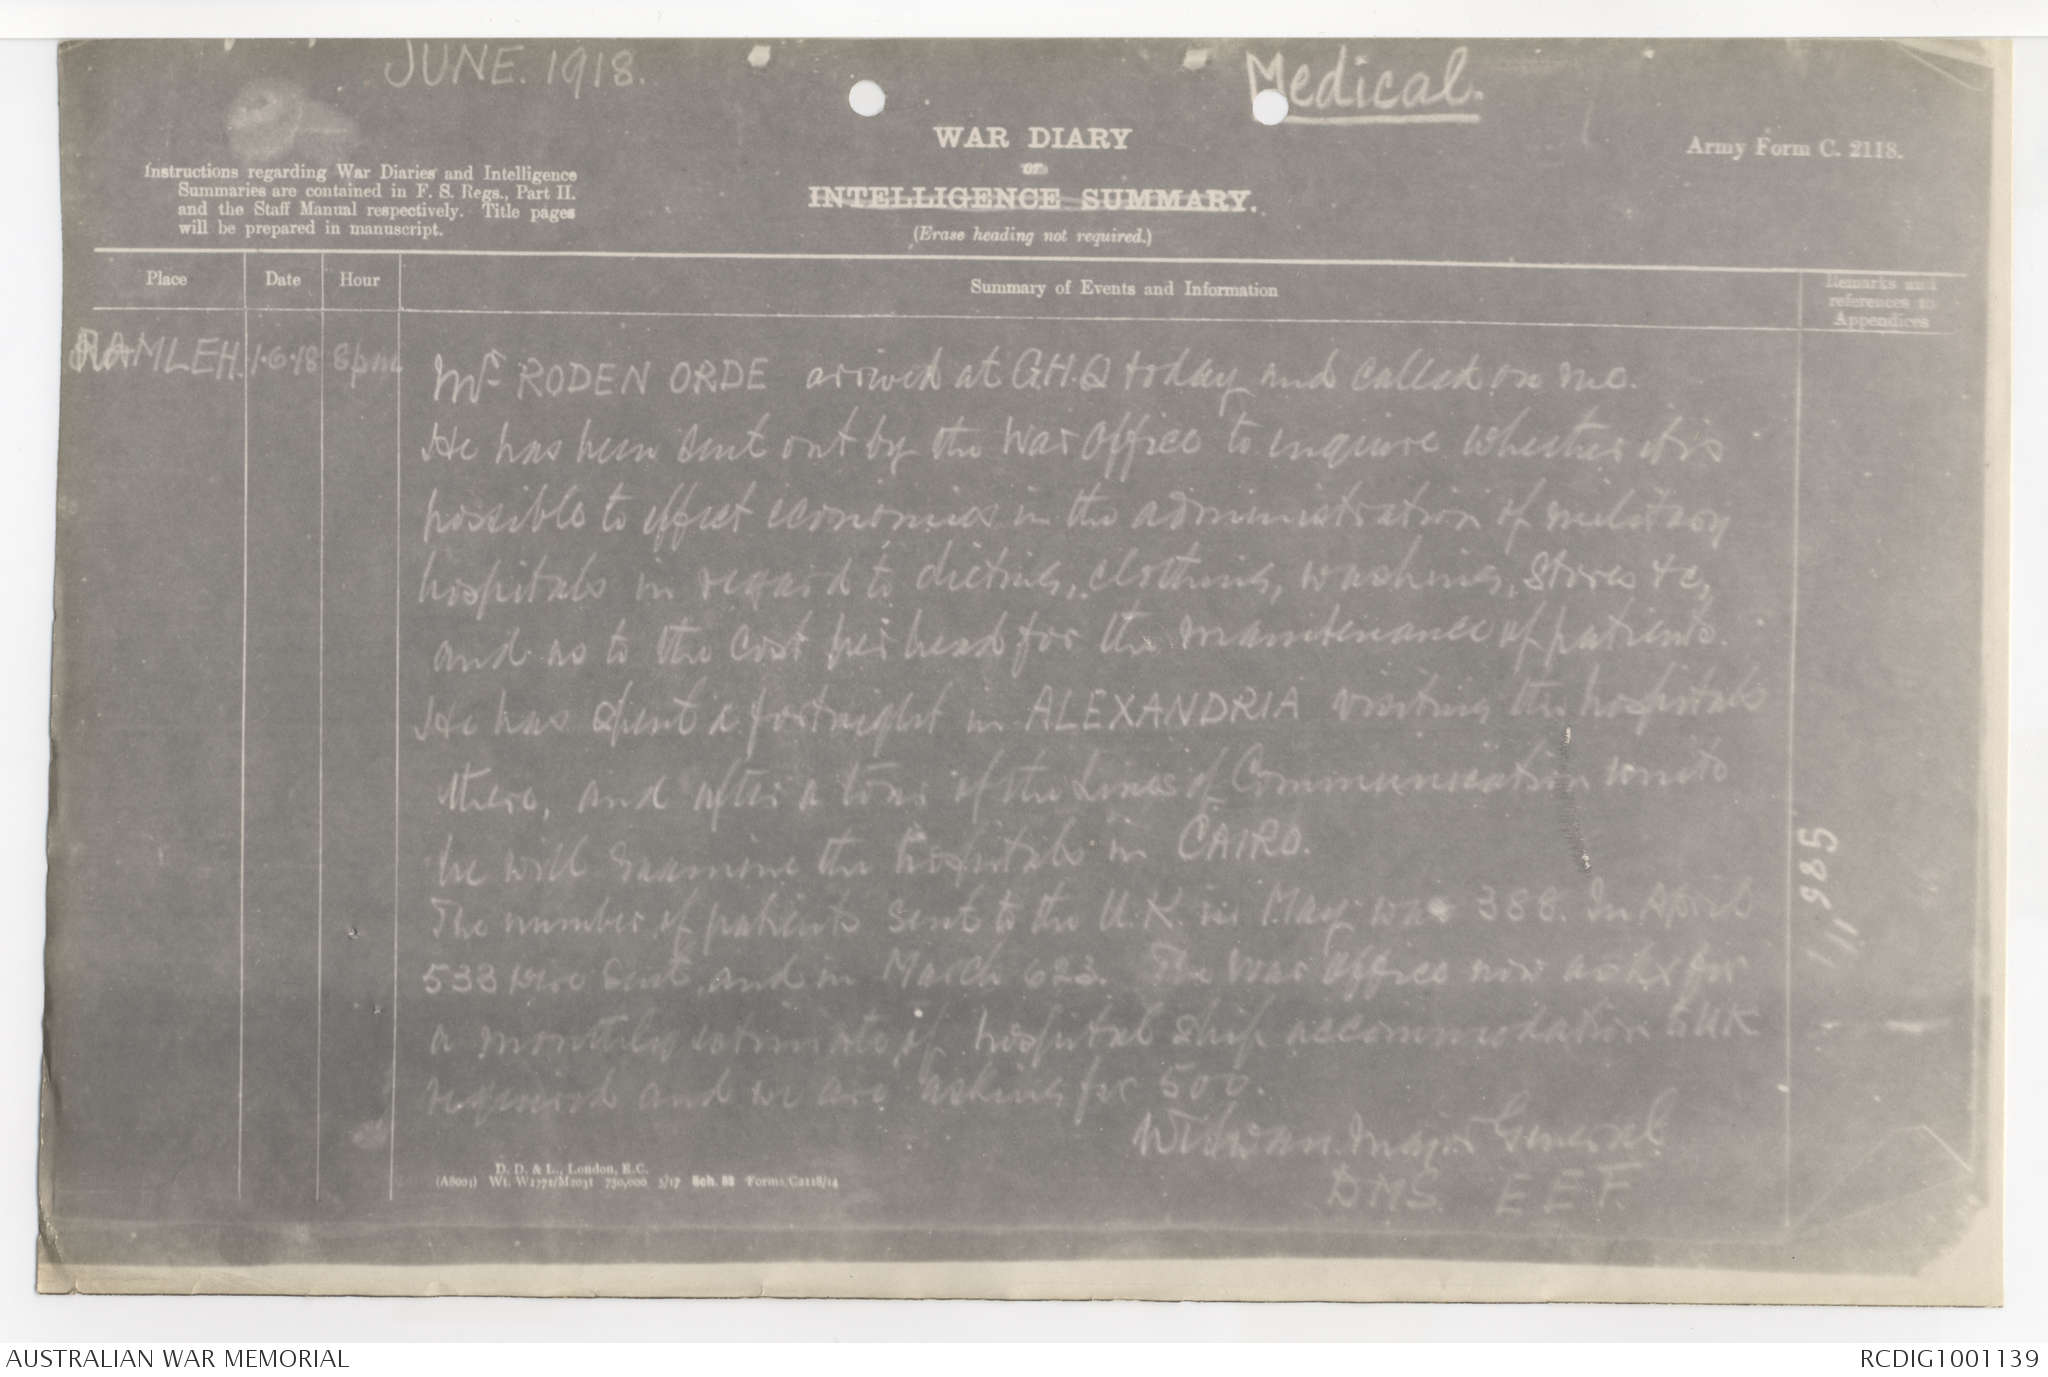 JUNE. 1918.
Medical.
WAR DIARY
or
INTELLIGENCE SUMMARY.
(Erase heading not required.)
Army Form C. 2118.
Instructions regarding War Diaries and Intelligence
Summaries are contained in F. S. Regs., Part II.
and the Staff Manual respectively. Title pages
will be prepared in manuscript.
Place
Date
Hour
Summary of Events and Information
Remarks and
references to
Appendices
RAMLEH. 1.6.18 8pm
Mr RODEN ORDE arrived at G.H.Q today and called on me.
He has been sent out by the War Office to enquire whether it is
possible to effect economies in the administration of military
hospitals in regard to dieting, clothing, washing, stores &c,
and as to the cost per head for the maintenance of patients.
He has spent a fortnight in ALEXANDRIA visiting the hospitals
there, and after a tour of the Lines of Communication units
he will examine the hospitals in CAIRO.
The number of patients sent to the U.K. in May was 388. In April
533 were sent, and in March 623. The War Office now asks for
a monthly estimate of hospital ship accommodation to UK
required and we are asking for 500.
Major General.
DMS. E E F.
D. D. & L., London, E.C.
(A8001) Wt. W1771/M2031 750,000 5/17 Sch. 52 Forms/C2118/14
AUSTRALIAN WAR MEMORIAL
RCDIG1001139